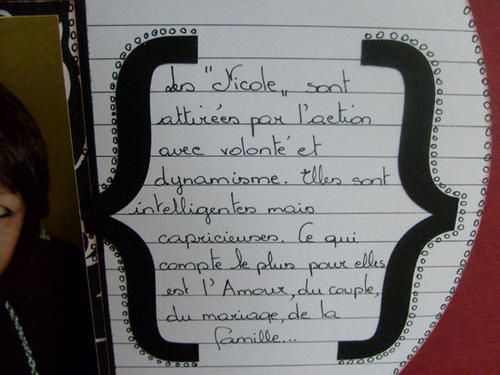 Les "Nicole" sont
attirées par l'action
avec volonté et
dynamisme. Elles sont
intelligentes mais
capricieuses. Ce qui
compte le plus pour elles
est l'Amour, du couple,
du mariage, de la
famille...